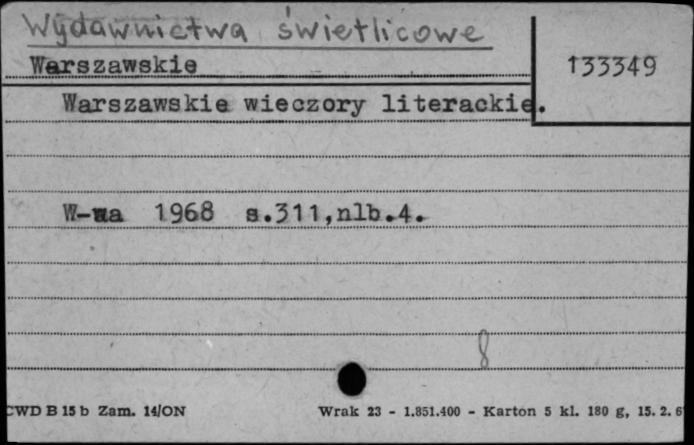 Wydawnictwa świetlicowe
Warszawskie
133349
Warszawskie wieczory literackie.
W-wa 1968 s.311,nlb.4.
8
CWD B 15 b Zam. 14/ON
Wrak 23 - 1.851.400 - Karton 5 kl. 180 g, 15. 2. 6